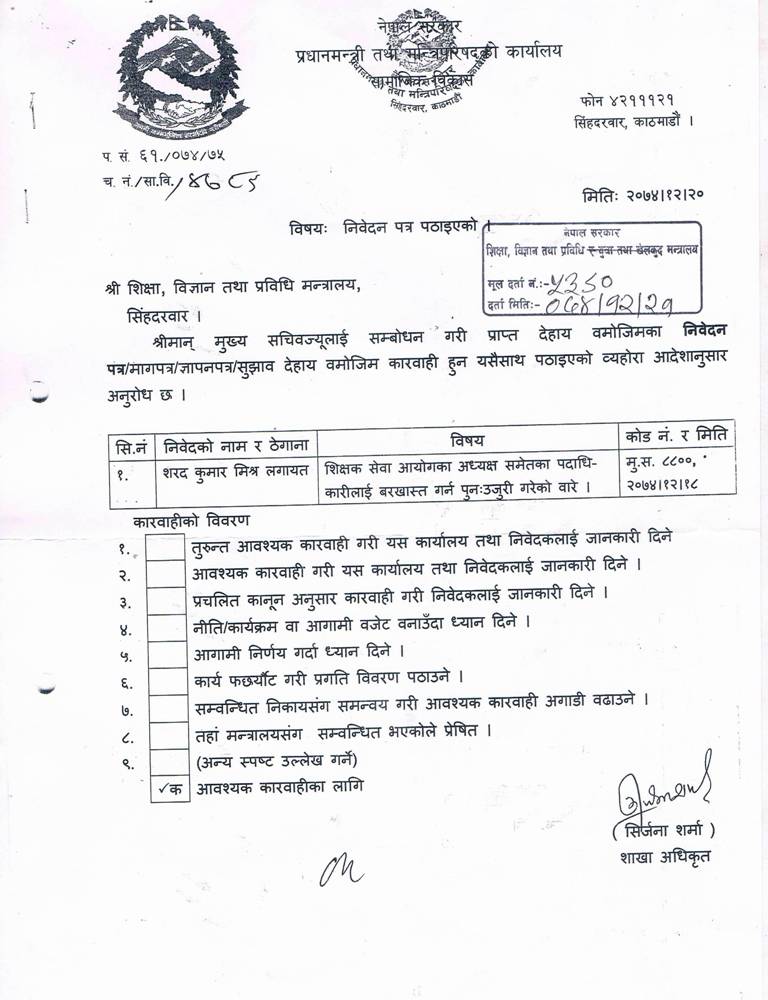 नेपाल सरकार
प्रधानमन्त्री तथा मन्त्रिपरिषद्को कार्यालय
सामाजिक विकास
सिंहदरवार, काठमाडौं
फोन ४२१११२१
सिंहदरवार, काठमाडौं ।
प. सं. ६१./०७४/७५
च. नं./सा.वि./
मितिः २०७४।१२।२०
विषयः निवेदन पत्र पठाइएको ।
नेपाल सरकार
शिक्षा, विज्ञान तथा प्रविधि र युवा तथा खेलकुद मन्त्रालय
मूल दर्ता नं.:-
दर्ता मिति:- ०७४/१२/२१
श्री शिक्षा, विज्ञान तथा प्रविधि मन्त्रालय,
सिंहदरवार ।
श्रीमान् मुख्य सचिवज्यूलाई सम्बोधन गरी प्राप्त देहाय वमोजिमका निवेदन
पत्र/मागपत्र/ज्ञापनपत्र/सुझाव देहाय वमोजिम कारवाही हुन यसैसाथ पठाइएको व्यहोरा आदेशानुसार
अनुरोध छ ।
सि.नं निवेदको नाम र ठेगाना विषय कोड नं. र मिति
१. शरद कुमार मिश्र लगायत शिक्षक सेवा आयोगका अध्यक्ष समेतका पदाधि- मु.स. ८८००,
कारीलाई बरखास्त गर्न पुनःउजुरी गरेको वारे । २०७४।१२।१८
कारवाहीको विवरण
१. तुरुन्त आवश्यक कारवाही गरी यस कार्यालय तथा निवेदकलाई जानकारी दिने
२. आवश्यक कारवाही गरी यस कार्यालय तथा निवेदकलाई जानकारी दिने ।
३. प्रचलित कानून अनुसार कारवाही गरी निवेदकलाई जानकारी दिने ।
४. नीति/कार्यक्रम वा आगामी वजेट वनाउँदा ध्यान दिने ।
५. आगामी निर्णय गर्दा ध्यान दिने ।
६. कार्य फछर्यौट गरी प्रगति विवरण पठाउने ।
७. सम्वन्धित निकायसंग समन्वय गरी आवश्यक कारवाही अगाडी वढाउने ।
८. तहां मन्त्रालयसंग सम्वन्धित भएकोले प्रेषित ।
९. (अन्य स्पष्ट उल्लेख गर्ने)
✓क आवश्यक कारवाहीका लागि
( सिर्जना शर्मा )
शाखा अधिकृत